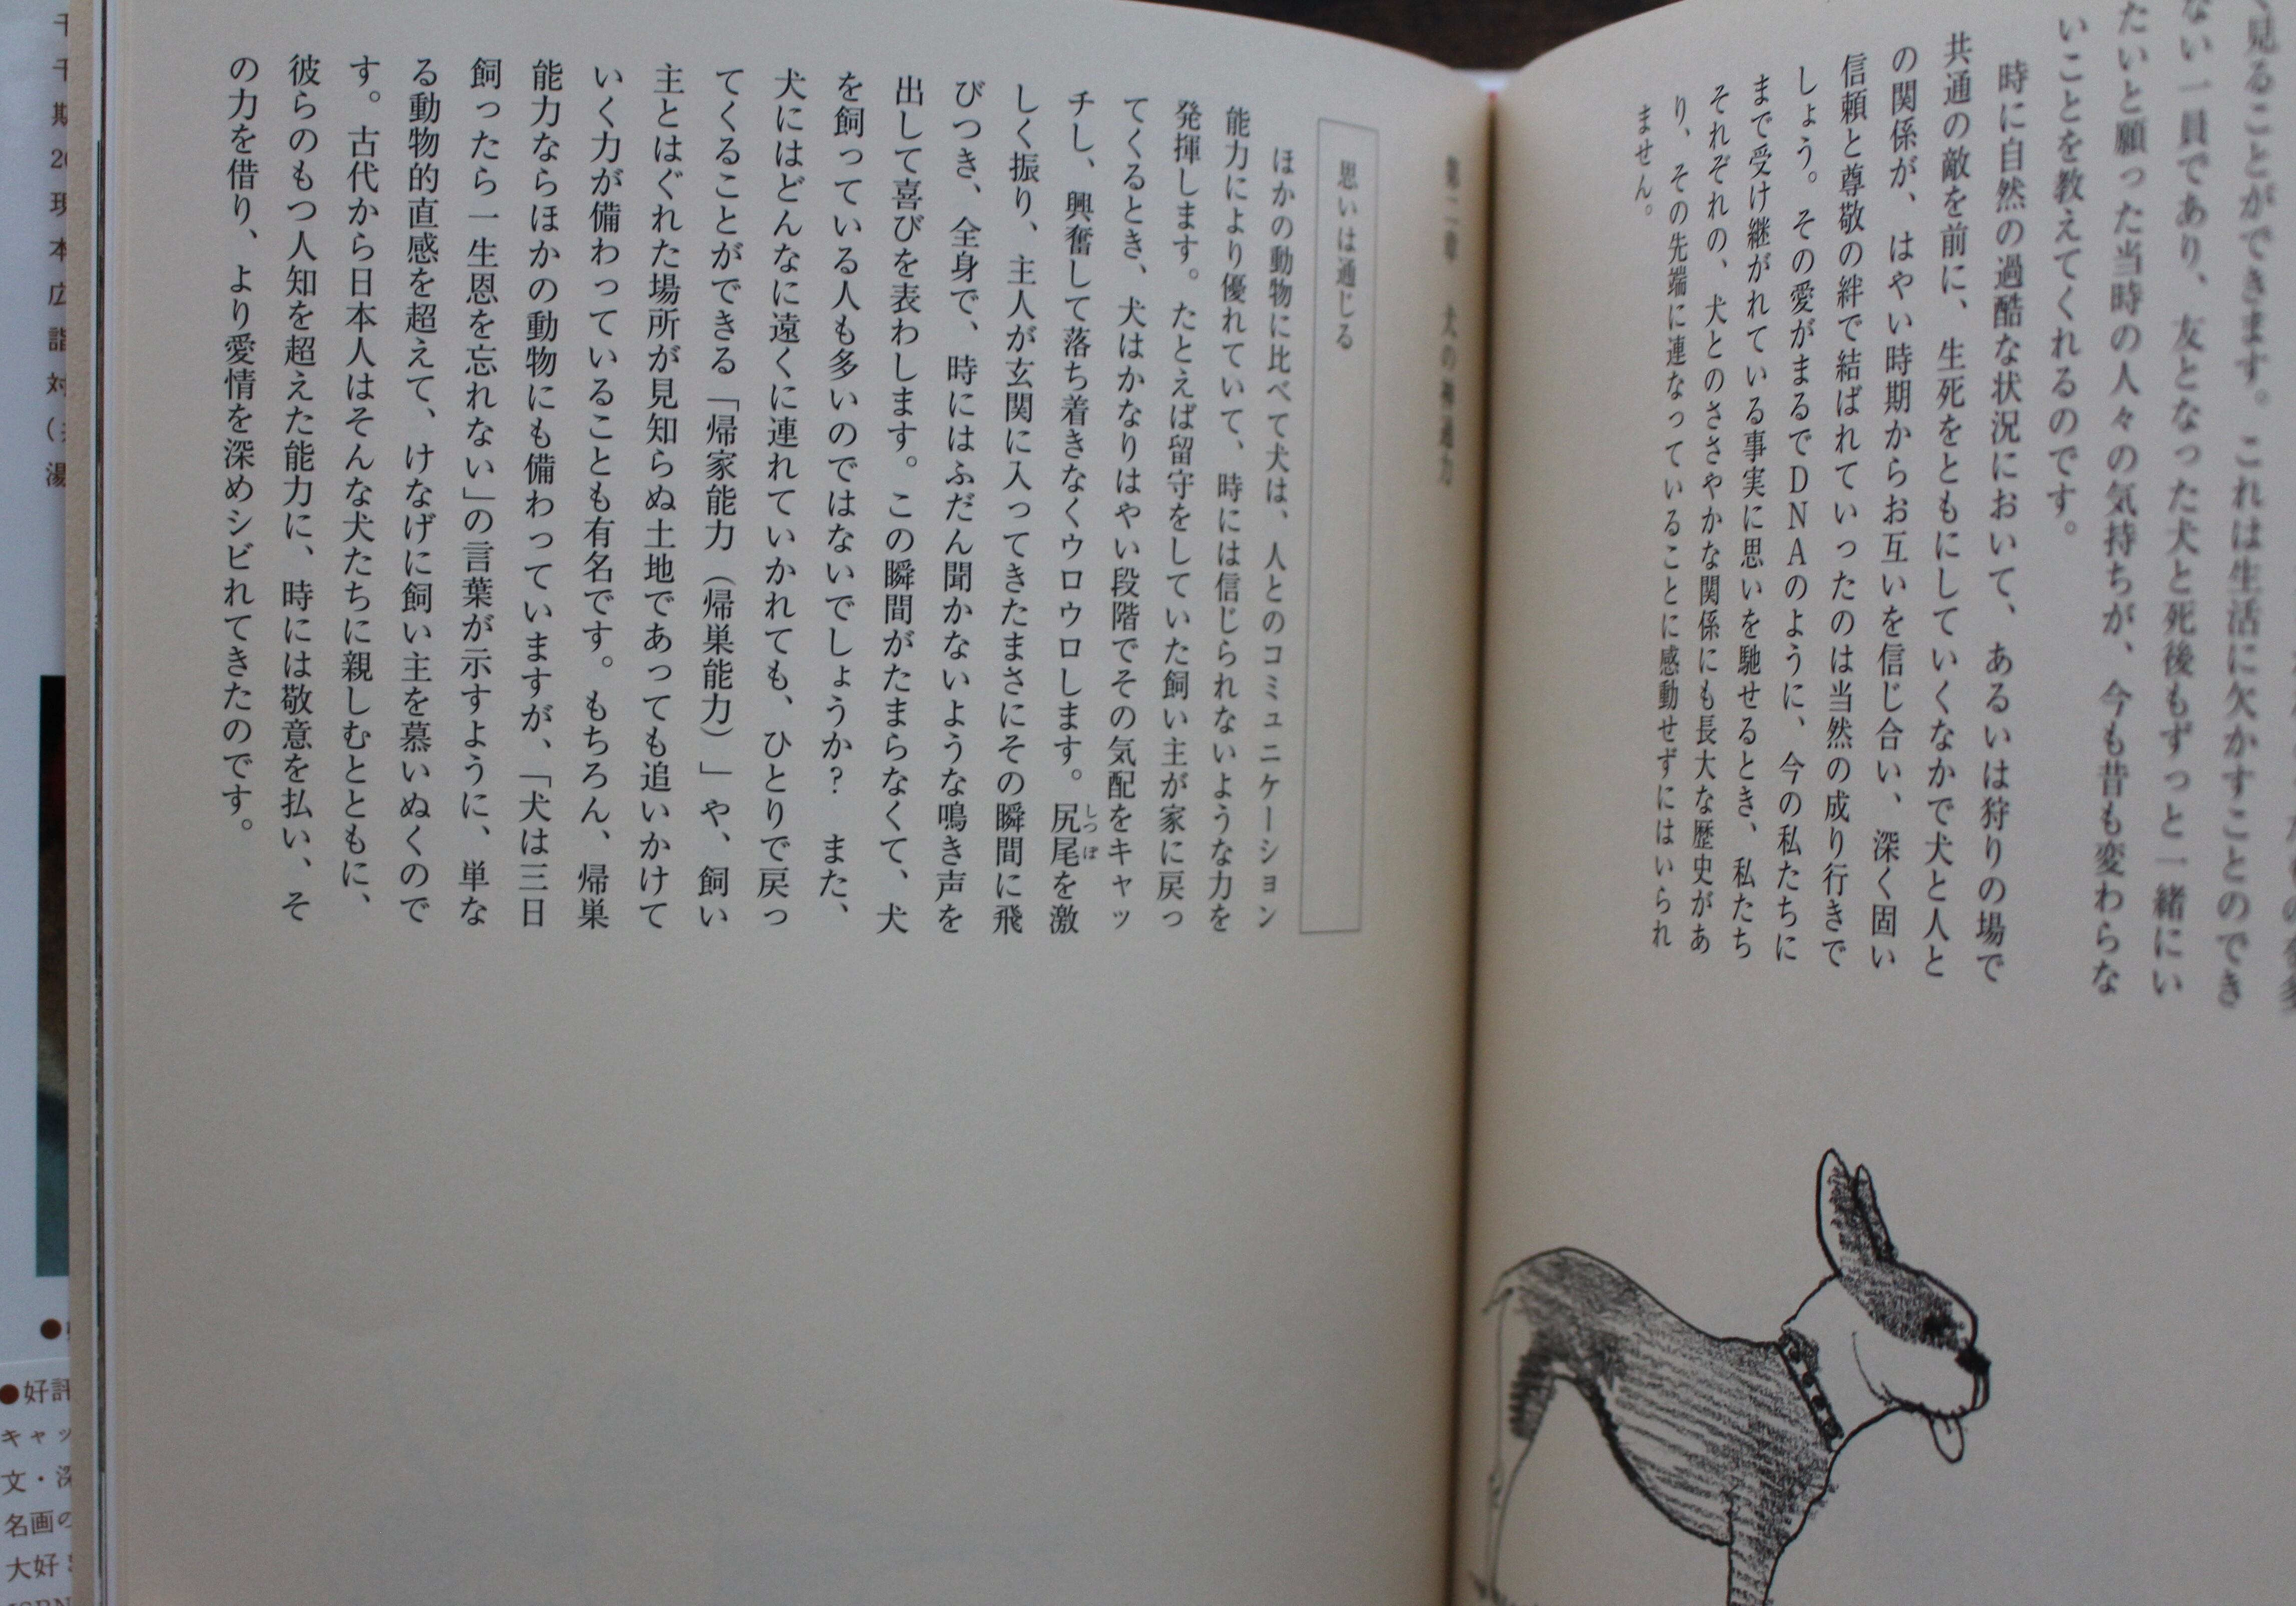 見ることができます。これは生活に欠かすことのでき
ない一員であり、友となった犬と死後もずっと一緒にい
たいと願った当時の人々の気持ちが、今も昔も変わらな
いことを教えてくれるのです。
時に自然の過酷な状況において、あるいは狩りの場で
共通の敵を前に、生死をともにしていくなかで犬と人と
の関係が、はやい時期からお互いを信じ合い、深く固い
信頼と尊敬の絆で結ばれていったのは当然の成り行きで
しょう。その愛がまるでDNAのように、今の私たちに
まで受け継がれている事実に思いを馳せるとき、私たち
それぞれの、犬とのささやかな関係にも長大な歴史があ
り、その先端に連なっていることに感動せずにはいられ
ません。
第二章 犬の神通力
思いは通じる
ほかの動物に比べて犬は、人とのコミュニケーション
能力により優れていて、時には信じられないような力を
発揮します。たとえば留守をしていた飼い主が家に戻っ
てくるとき、犬はかなりはやい段階でその気配をキャッ
チし、興奮して落ち着きなくウロウロします。尻尾を激
しっぽ
しく振り、主人が玄関に入ってきたまさにその瞬間に飛
びつき、全身で、時にはふだん聞かないような鳴き声を
出して喜びを表わします。この瞬間がたまらなくて、犬
を飼っている人も多いのではないでしょうか？ また、
犬にはどんなに遠くに連れていかれても、ひとりで戻っ
てくることができる「帰家能力（帰巣能力）」や、飼い
主とはぐれた場所が見知らぬ土地であっても追いかけて
いく力が備わっていることも有名です。もちろん、帰巣
能力ならほかの動物にも備わっていますが、「犬は三日
飼ったら一生恩を忘れない」の言葉が示すように、単な
る動物的直感を超えて、けなげに飼い主を慕いぬくので
す。古代から日本人はそんな犬たちに親しむとともに、
彼らのもつ人知を超えた能力に、時には敬意を払い、そ
の力を借り、より愛情を深めシビれてきたのです。
●好評
キャッ
文・深
名画の
大好